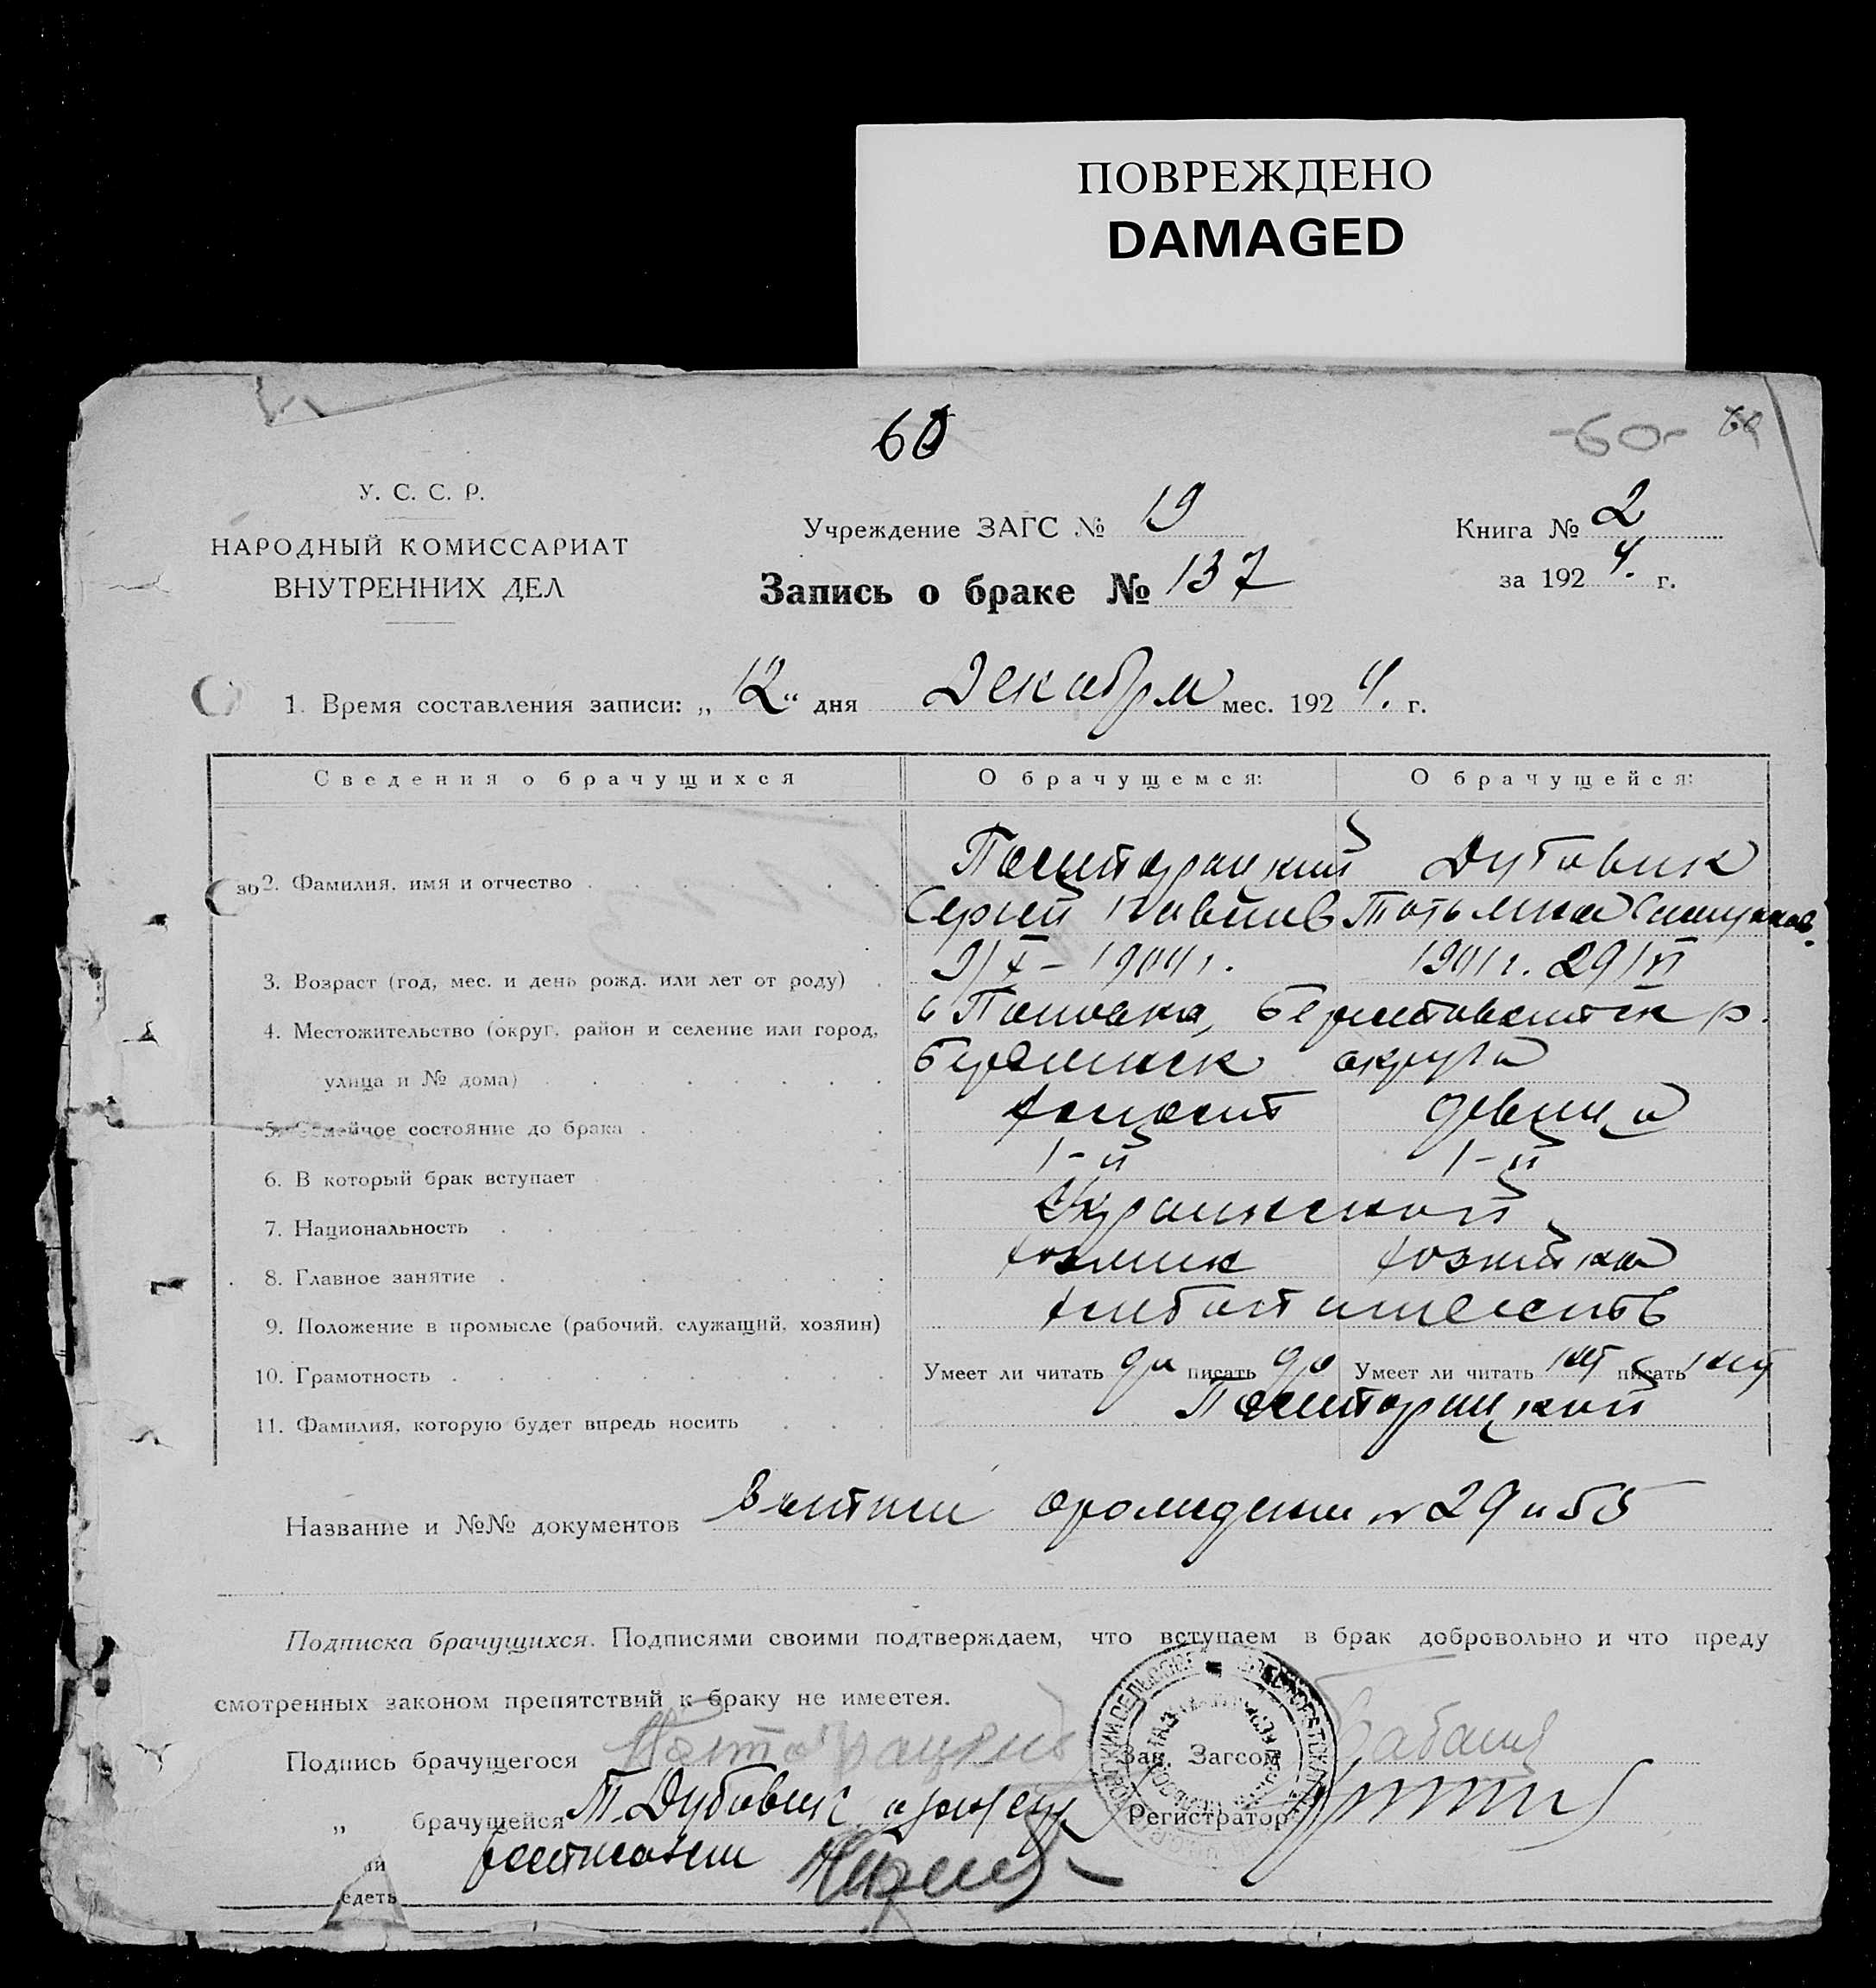 ПОВРЕЖДЕНО
DAMAGED
60
-60-
У. С. С. Р.
НАРОДНЫЙ КОМИССАРИАТ
ВНУТРЕННИХ ДЕЛ
Учреждение ЗАГС № 19
Запись о браке № 137
Книга № 2
за 1924. г.
1. Время составления записи: „12“ дня Декабря мес. 1924. г.
Сведения о брачущихся О брачущемся: О брачущейся:
2. Фамилия, имя и отчество Дубовик
Сергей Татьяна
3. Возраст (год, мес. и день рожд. или лет от роду) 9/X – 1904 г. 1901 г. 29/VI
4. Местожительство (округ, район и селение или город, с Поповка,
улица и № дома) округа
5. Семейное состояние до брака холост девица
6. В который брак вступает 1-й 1-й
7. Национальность Украинской
8. Главное занятие хозяин хозяйка
9. Положение в промысле (рабочий, служащий, хозяин) хлебопашество
10. Грамотность Умеет ли читать да писать да Умеет ли читать нет писать нет
11. Фамилия, которую будет впредь носить
Название и №№ документов о рождении № 29 и 55
Подписка брачущихся. Подписями своими подтверждаем, что вступаем в брак добровольно и что преду
смотренных законом препятствий к браку не имеетея.
Подпись брачущегося Зав. Загсом
„ брачущейся Т. Дубовик Регистратор